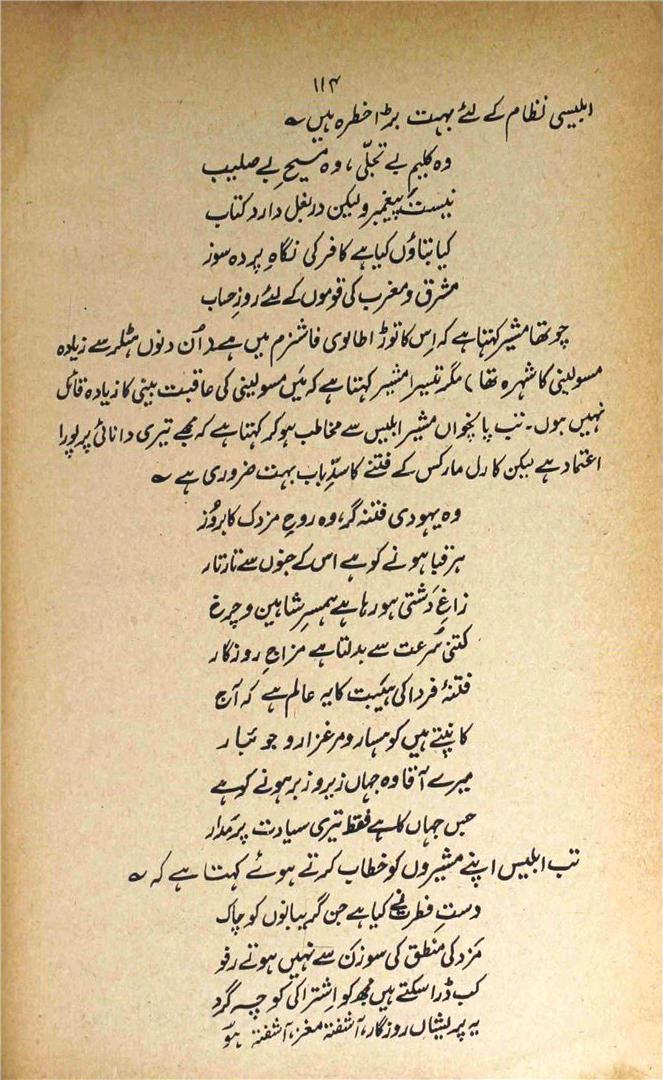 ۱۱۴
ابلیسی نظام کے لئے بہت بڑا خطرہ ہیں ؎
وہ کلیم بے تجلّی، وہ مسیح بے صلیب
نیست پیغمبر ولیکن در بغل دارد کتاب
کیا بتاؤں کیا ہے کافر کی نگاہِ پردہ سوز
مشرق و مغرب کی قوموں کے لئے روزِ حساب
چوتھا مشیر کہتا ہے کہ اِس کا توڑ اطالوی فاشزم میں ہے (اُن دنوں ہٹلر سے زیادہ
مسولینی کا شہرہ تھا) مگر تیسرا مشیر کہتا ہے کہ مَیں مسولینی کی عاقبت بینی کا زیادہ قائل
نہیں ہوں۔ تب پانچواں مشیر ابلیس سے مخاطب ہو کر کہتا ہے کہ مجھے تیری دانائی پر پورا
اعتماد ہے لیکن کارل مارکس کے فتنے کا سدِّ باب بہت ضروری ہے ؎
وہ یہودی فتنہ گر، وہ روحِ مزدک کا بُروز
ہر قبا ہونے کو ہے اس کے جنوں سے تار تار
زاغِ دَشتی ہو رہا ہے ہمسرِ شاہین و چرغ
کتنی سُرعت سے بدلتا ہے مزاجِ روزگار
فتنۂ فردا کی ہَیبت کا یہ عالم ہے کہ آج
کانپتے ہیں کوہسار و مرغزار و جوئبار
میرے آقا وہ جہاں زیر و زبر ہونے کو ہے
جس جہاں کا ہے فقط تیری سیادت پر مَدار
تب ابلیس اپنے مشیروں کو خطاب کرتے ہوئے کہتا ہے کہ ؎
دستِ فطرت نے کیا ہے جن گریبانوں کو چاک
مَزدکی منطق کی سوزن سے نہیں ہوتے رفو
کب ڈرا سکتے ہیں مجھ کو اِشتراکی کوچہ گرد
یہ پریشاں روزگار، آشفتہ مغز، آشفتہ ہُو